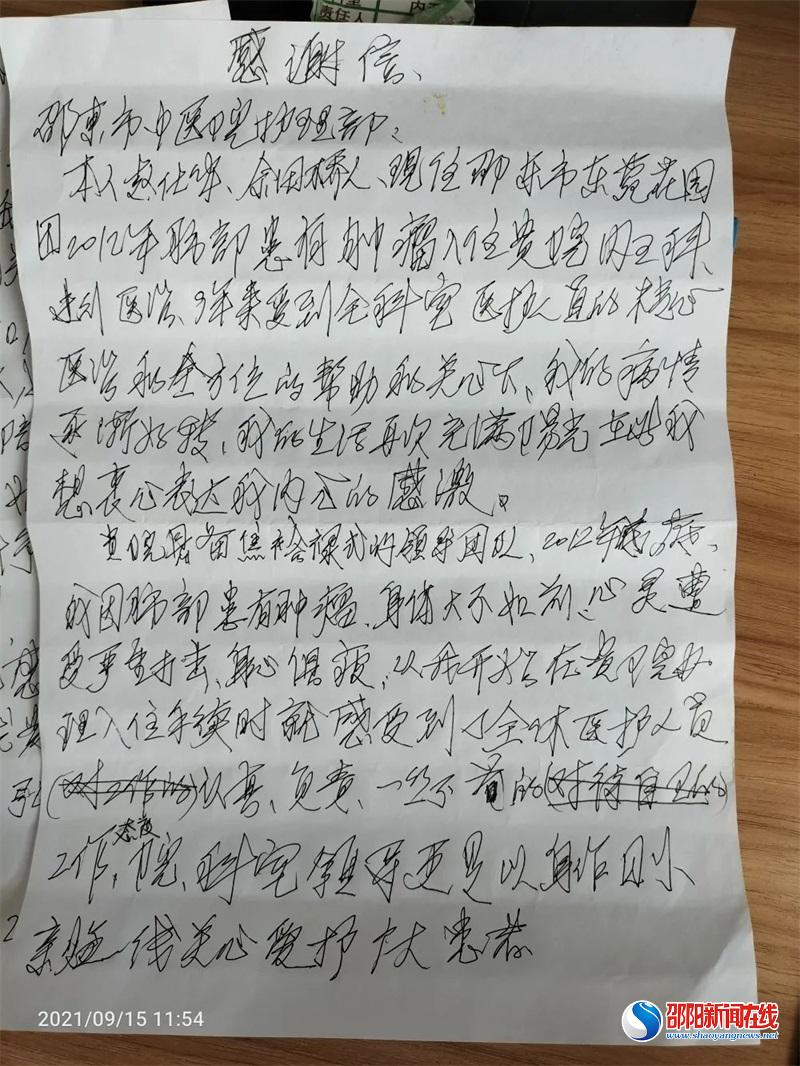 责任人
感谢信、
邵东市中医院护理部：
本人赵仕华、余田桥人、现住邵东市东莞花园
因2012年肺部患有肿瘤入住贵院内三科、
进行医治、9年来受到全科室医护人员的精心
医治和全方位的帮助和关心下、我的病情
逐渐好转、我的生活再次充满阳光在此我
想衷心表达我内心的感激。
贵院具备焦裕禄式好领导团队、2012年
我因肺部患有肿瘤、身体大不如前、心灵遭
受严重打击、身心俱疲、从我开始在贵院办
理入住手续时就感受到了全体医护人员
(对工作的)认真、负责、一丝不苟的(对待自己的)
态度
工作，院、科室领导更是以身作则
亲临一线关心爱护广大患者
2021/09/15 11:54
邵阳新闻在线
www.shaoyangnews.net